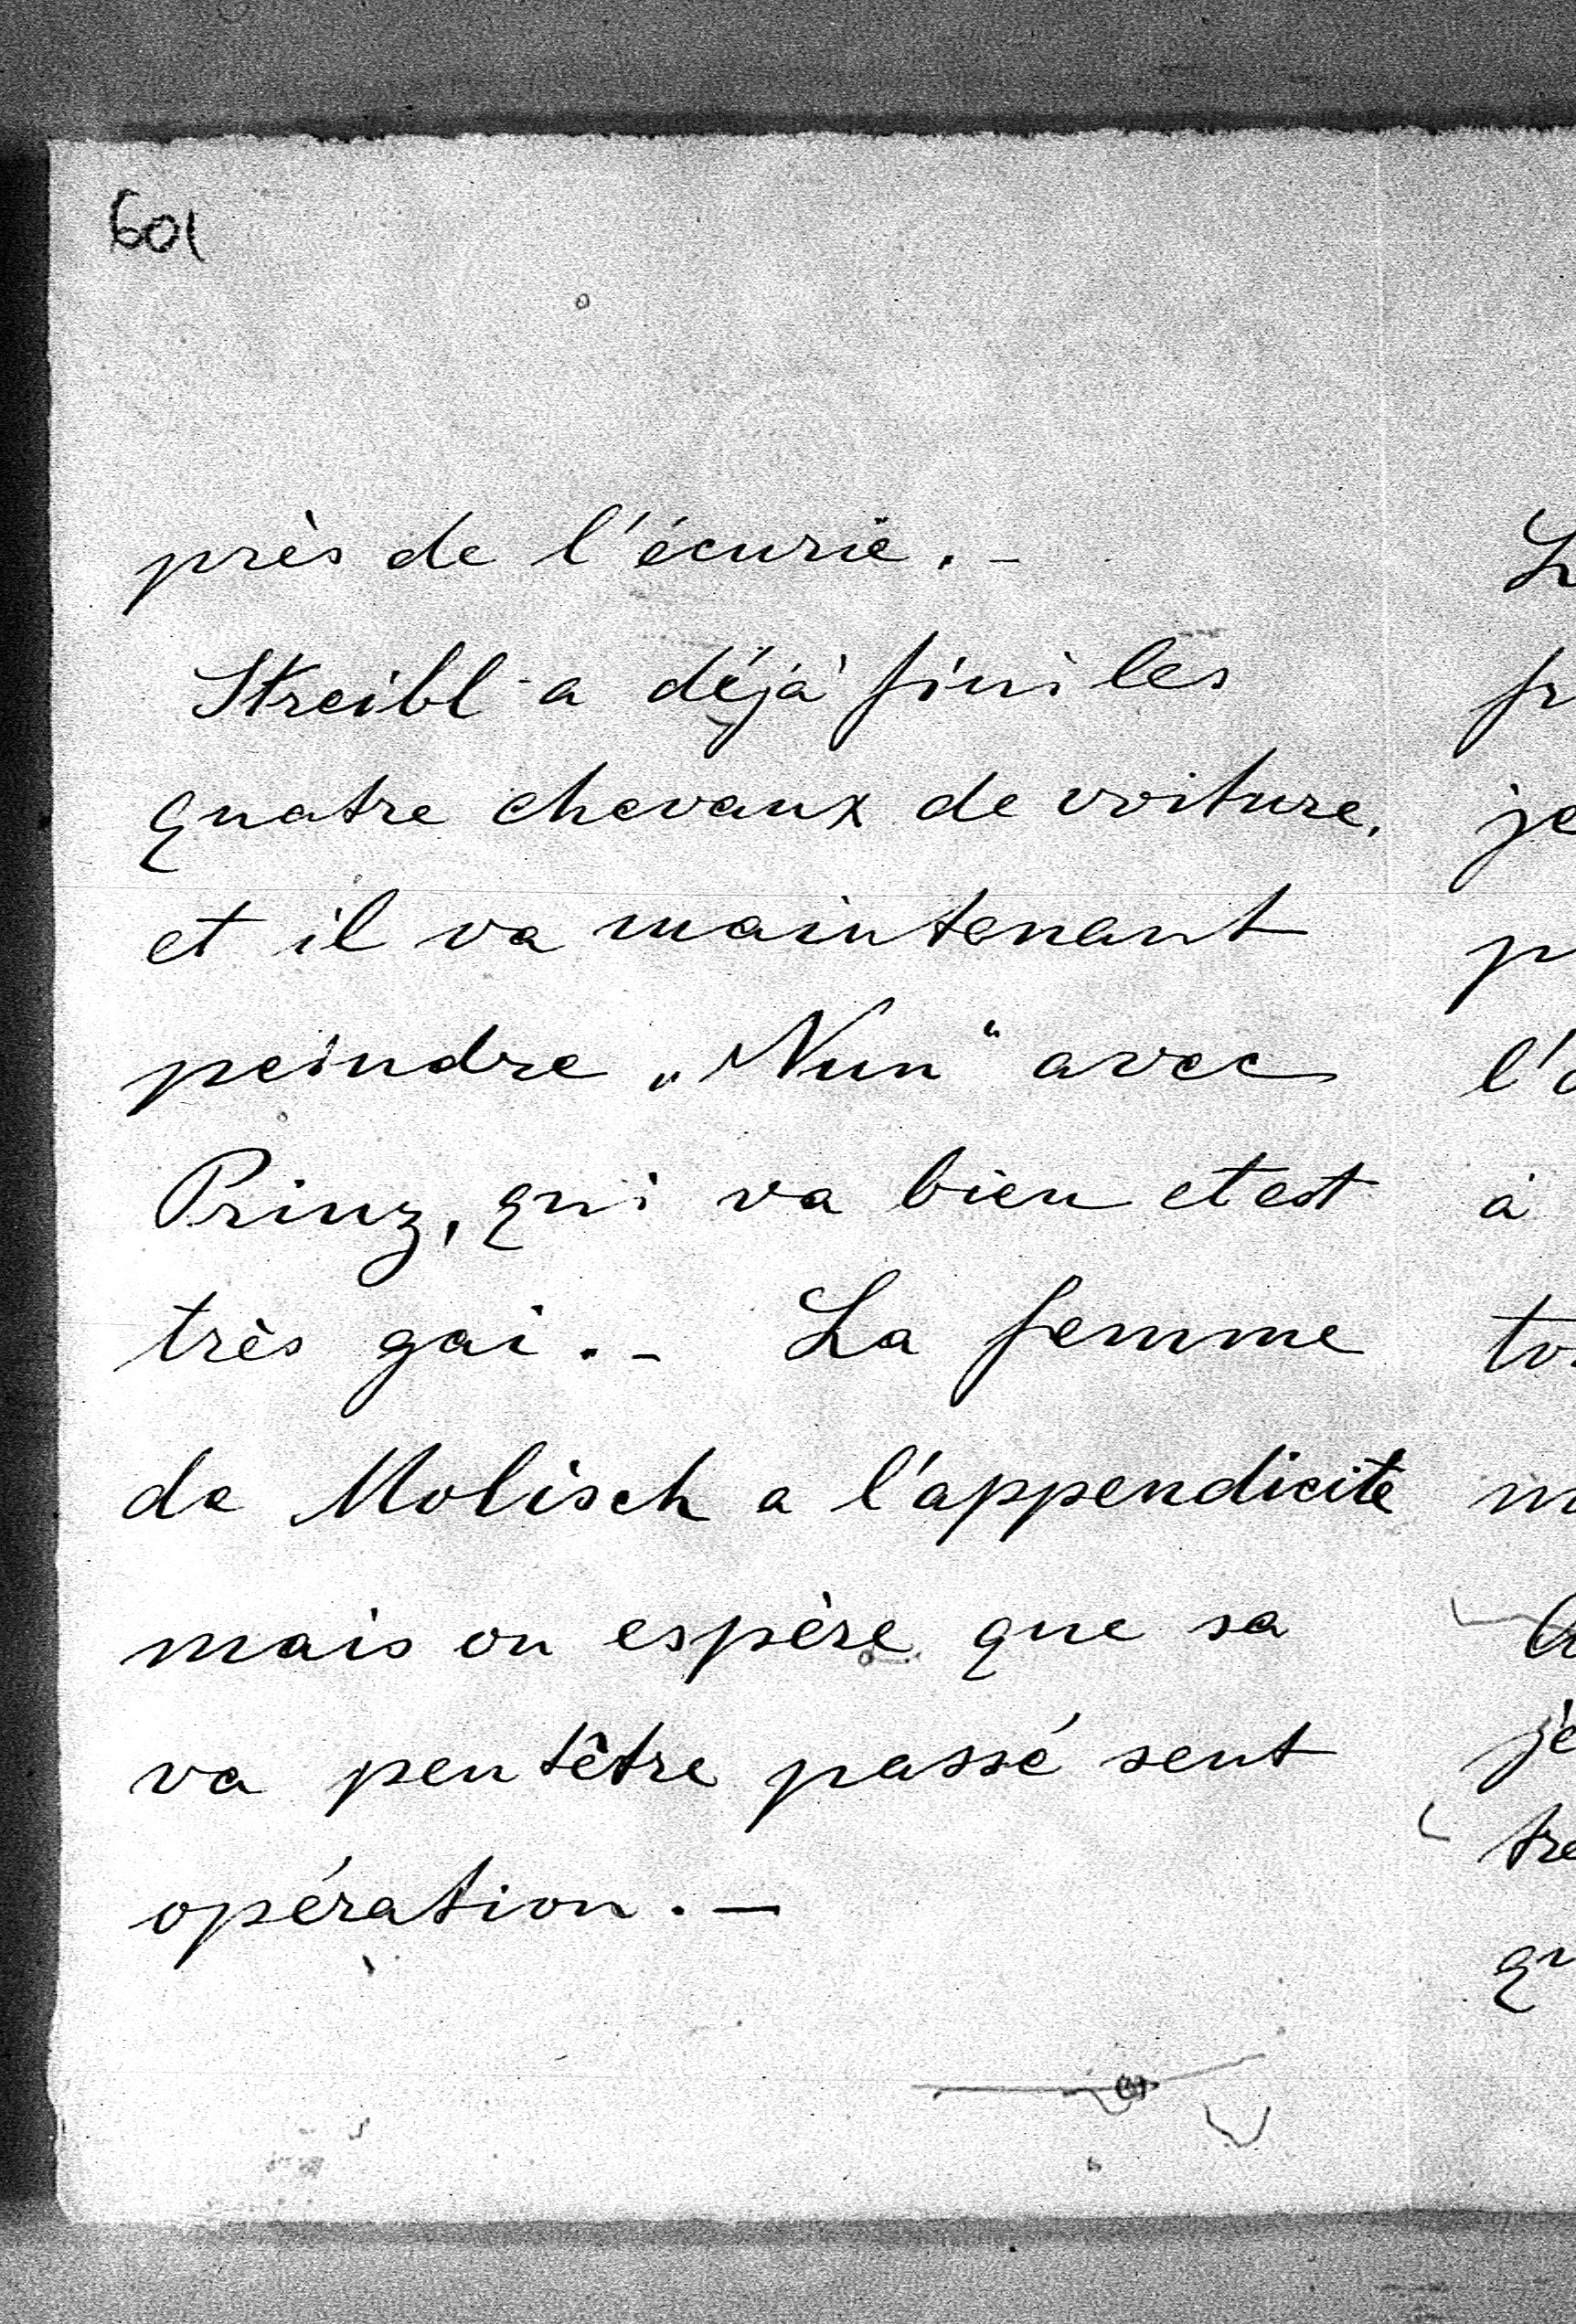 601
près de l'écurie. -
Streibl a déjà fini les
quatre chevaux de voiture,
et il va maintenant
peindre „Nun“ avec
Prinz, qui va bien et est
très gai. - La femme
de Molisch a l'appendicite
mais on espère que sa
va peutêtre passé sent
opération. -